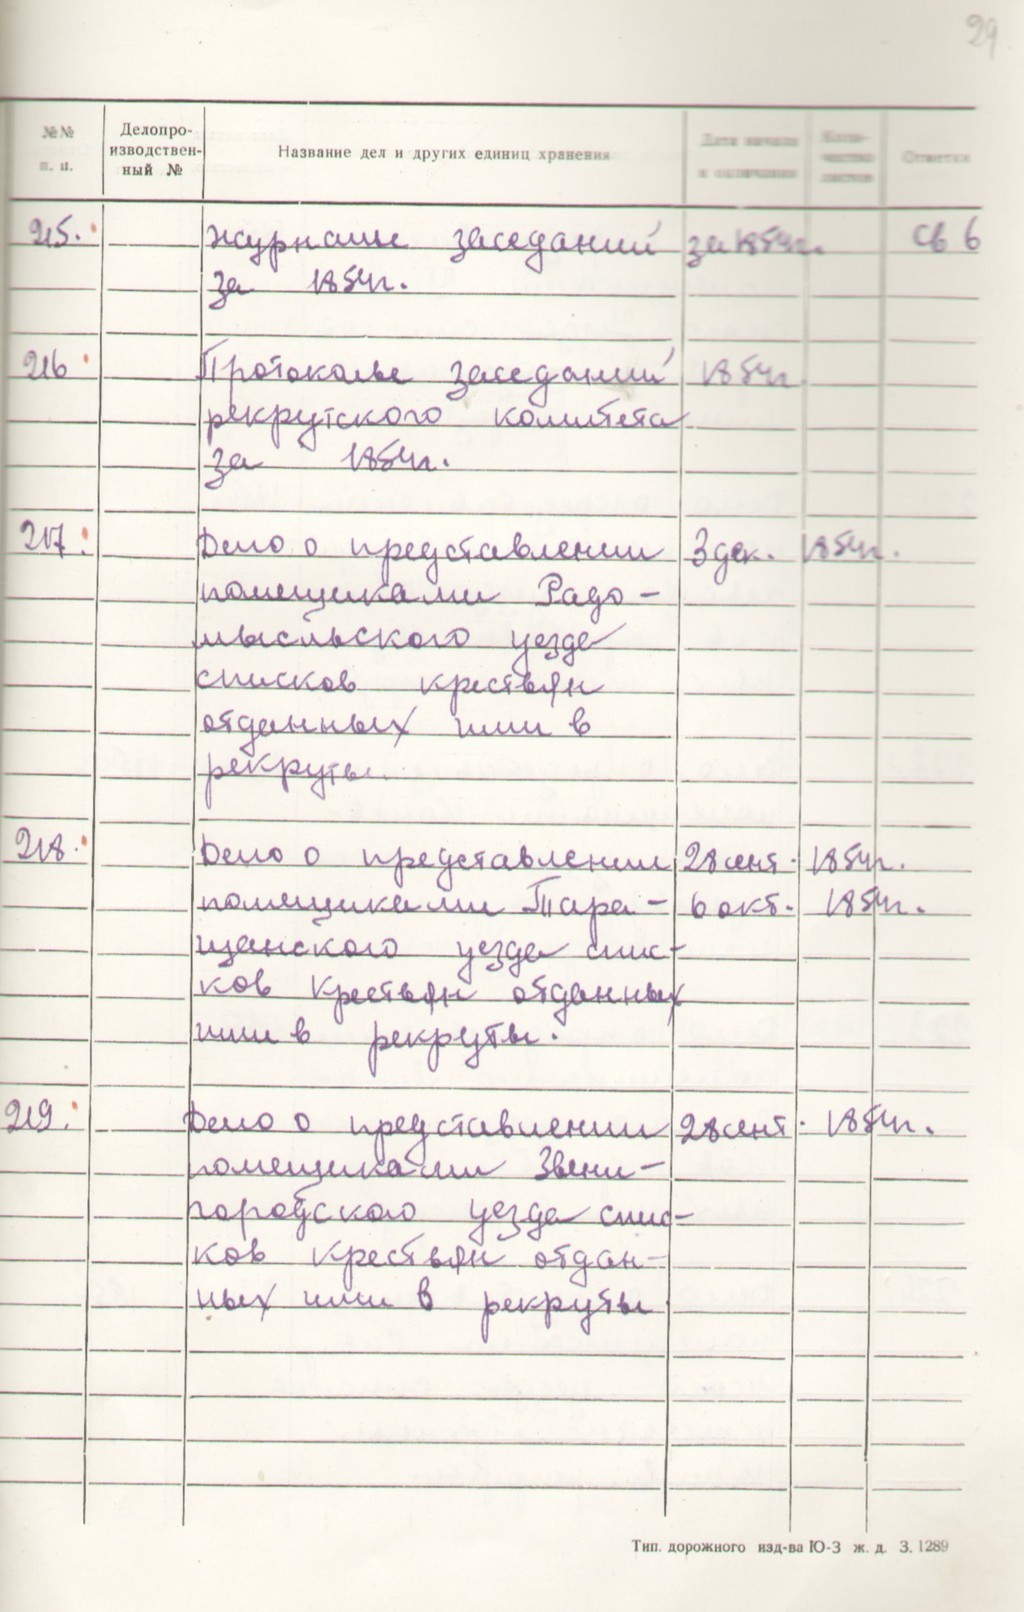 29
№№ п. п.
Делопро-
изводствен-
ный №
Название дел и других единиц хранения
Дата начала
и окончания
Коли-
чество
листов
Отметки
215. Журналы заседаний за 1854г. св 6
за 1854г.
216 Протоколы заседаний 1854г
рекрутского комитета
за 1854г.
217. Дело о представлении 3 дек. 1854г.
помещиками Радо-
мысльского уезда
списков крестьян
отданных ими в
рекруты
218. Дело о представлении 28 сент. 1854г.
помещиками Тара- 6 окт. 1854г.
щанского уезда спис-
ков крестьян отданных
ими в рекруты.
219. Дело о представлении 28 сент. 1854г.
помещиками Звени-
городского уезда спис-
ков крестьян отдан-
ных ими в рекруты
Тип. дорожного изд-ва Ю-З ж. д. З. 1289